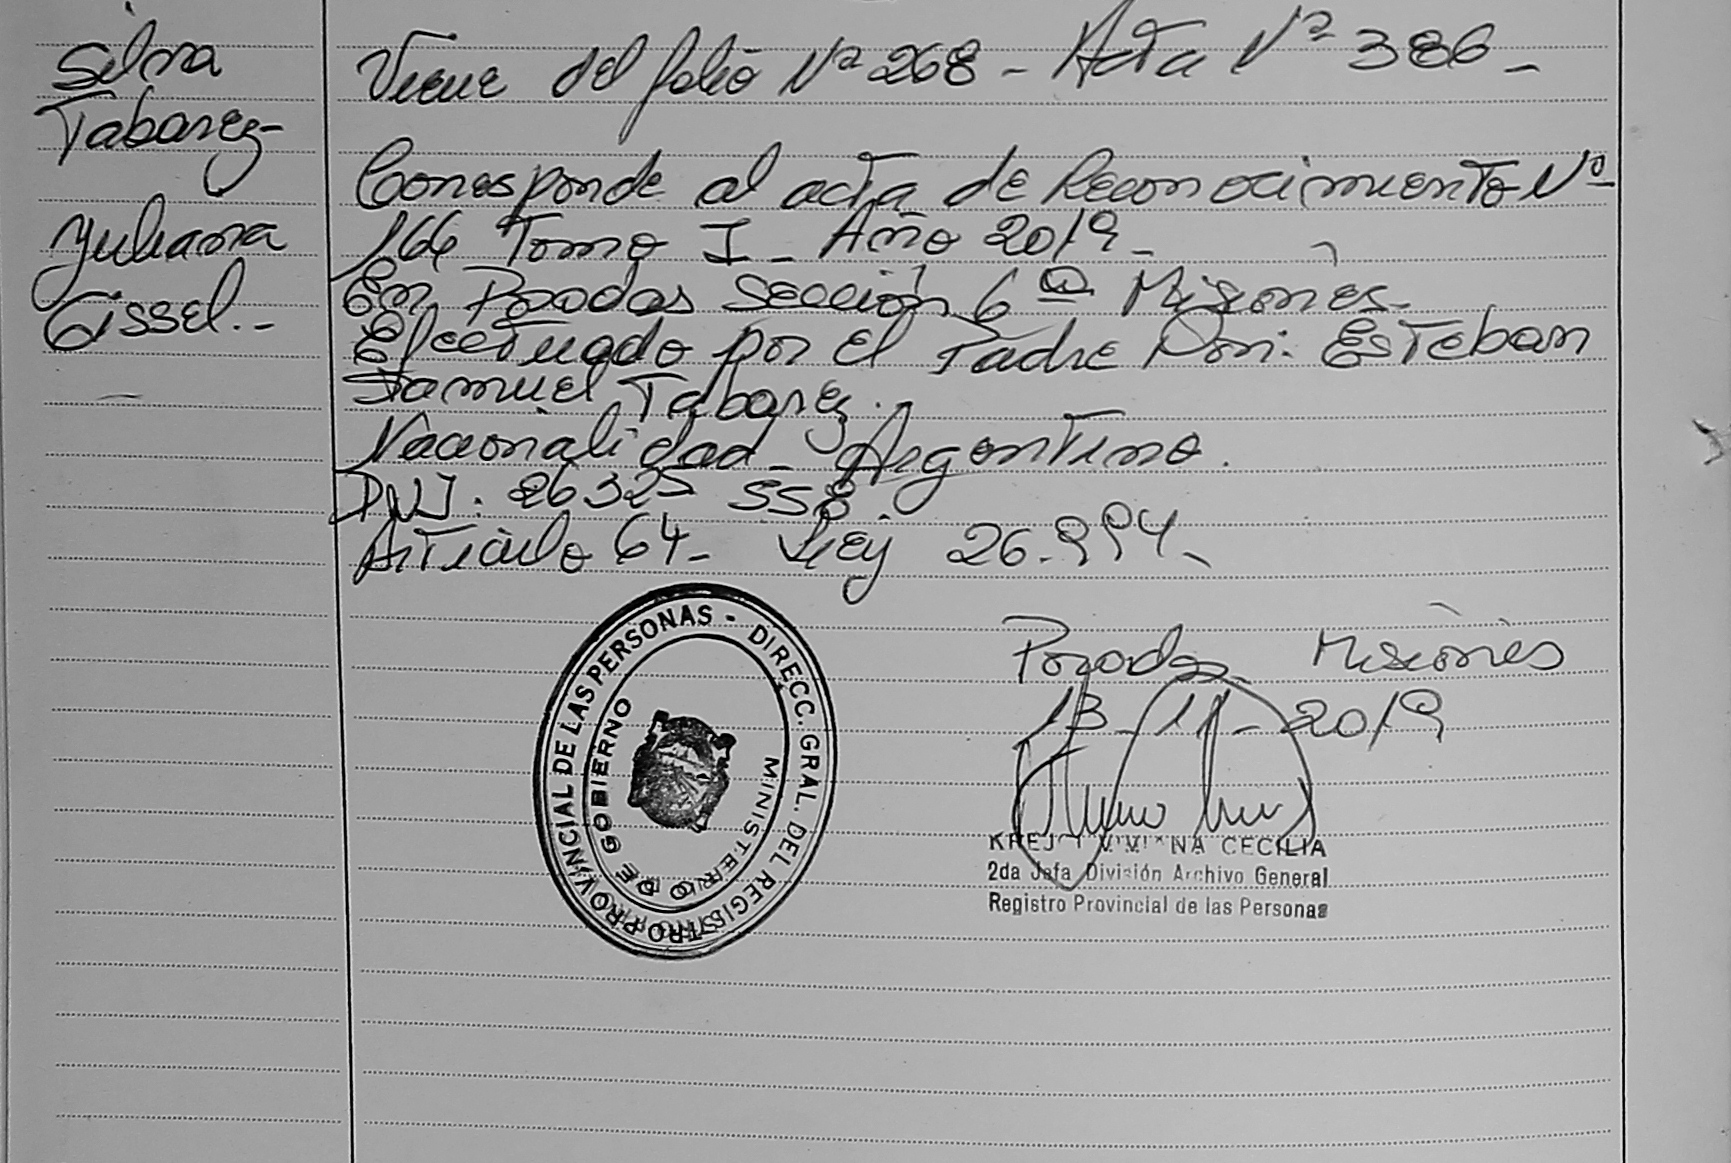 Silva
Tabarez-
Yuliana
Gissel.-
Viene del folio Nº 268 - Acta Nº 386 -
Corresponde al acta de Reconocimiento Nº
166 Tomo I - Año 2019 -
En Posadas Sección 6ª Misiones.
Efectuado por el Padre Don: Esteban
Samuel Tabarez.
Nacionalidad - Argentino.
DNI: 26 325 558
Artículo 64 - Ley 26.994 -
DIRECC. GRAL. DEL REGISTRO PROVINCIAL DE LAS PERSONAS -
MINISTERIO DE GOBIERNO
Posadas Misiones
13-11-2019
CECILIA
2da Jefa División Archivo General
Registro Provincial de las Personas